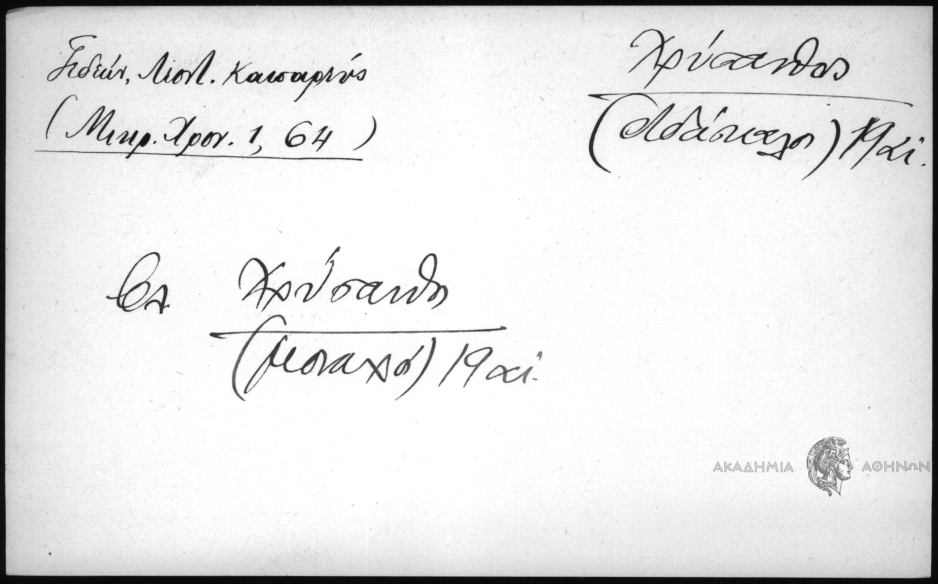 Γεδεών, Λεοντ. Καισαρεύς
(Μικρ. Χρον. 1, 64)
Χρύσανθος
(διδάσκαλος) 19 αἰ.
βλ. Χρύσανθος
(μοναχός) 19 αἰ.
ΑΚΑΔΗΜΙΑ ΑΘΗΝΩΝ